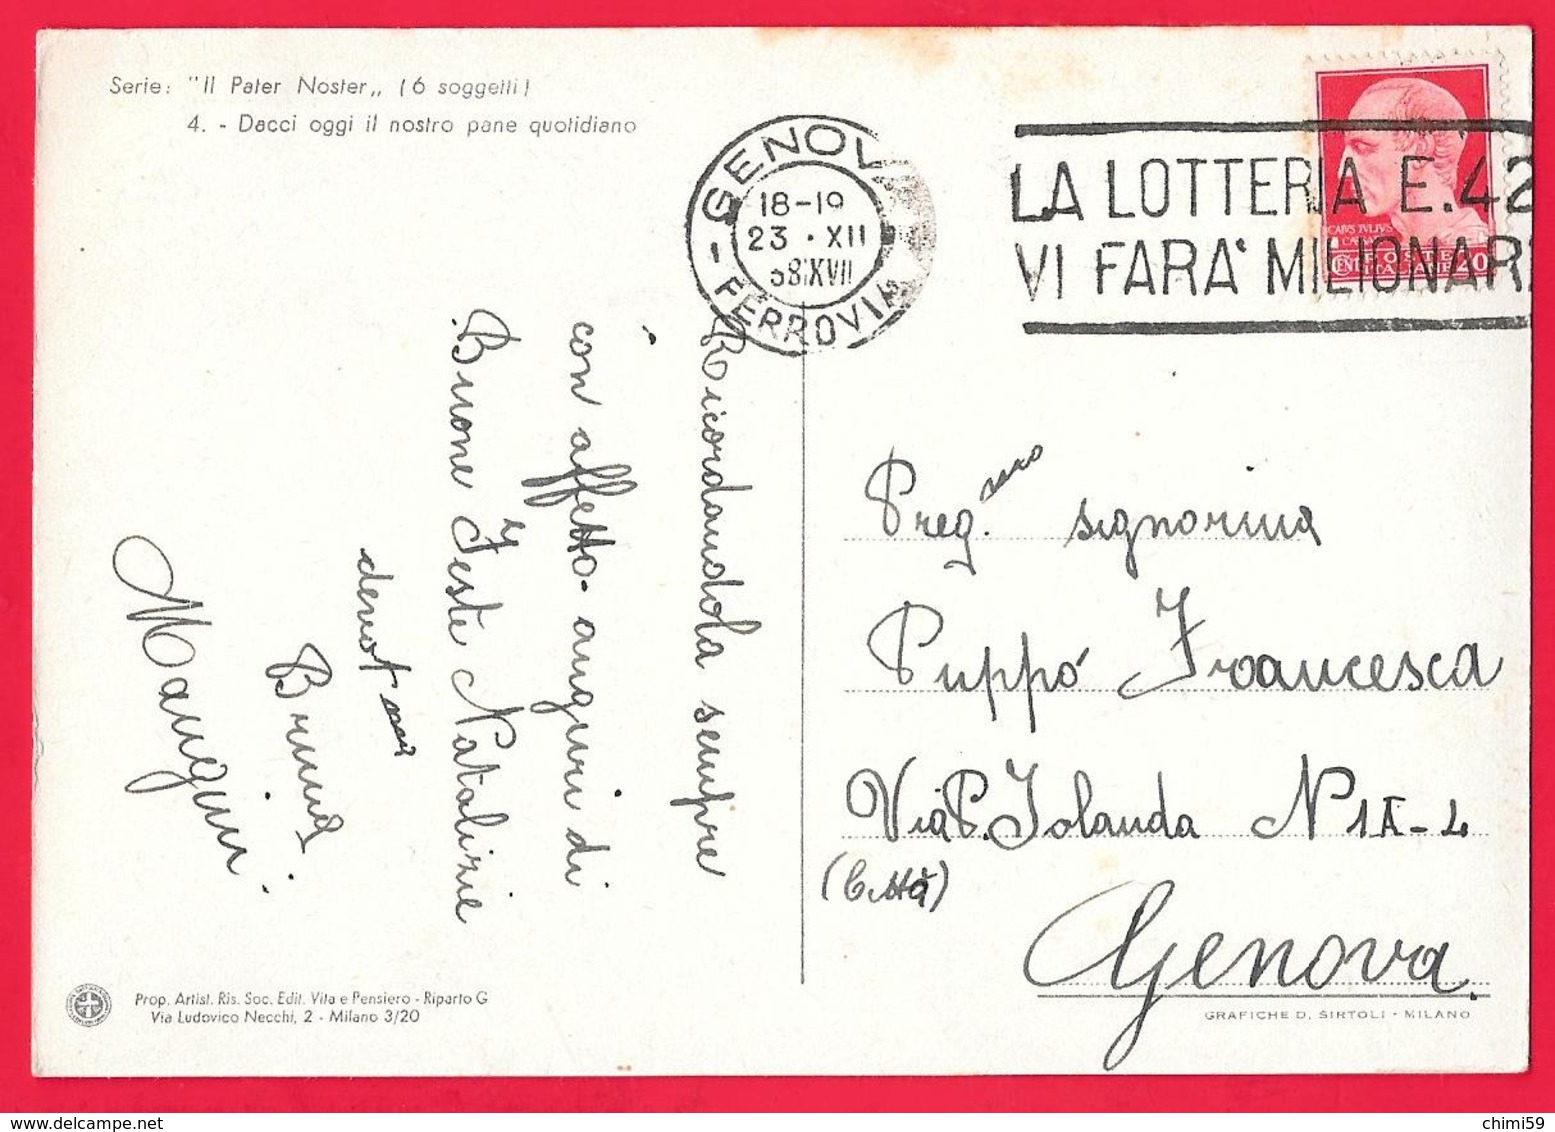 Serie: "Il Pater Noster„ (6 soggetti)
4. - Dacci oggi il nostro pane quotidiano
GENOVA
18-19
23 · XII
38 XVII
- FERROVIA
LA LOTTERIA E.42
VI FARA' MILIONARI
CAIVS IVLIVS
CAE
POSTE
CENT
ITALIANE
20
Ricordandola sempre
con affetto. auguri di
Buone Feste Natalizie
devot
Bruna
Mangini.
Preg. signorina
Puppo Francesca
Via P. Jolanda N 1A-4
(Città)
Genova.
Prop. Artist. Ris. Soc. Edit. Vita e Pensiero - Riparto G
Via Ludovico Necchi, 2 - Milano 3/20
GRAFICHE D. SIRTOLI - MILANO
chimi59